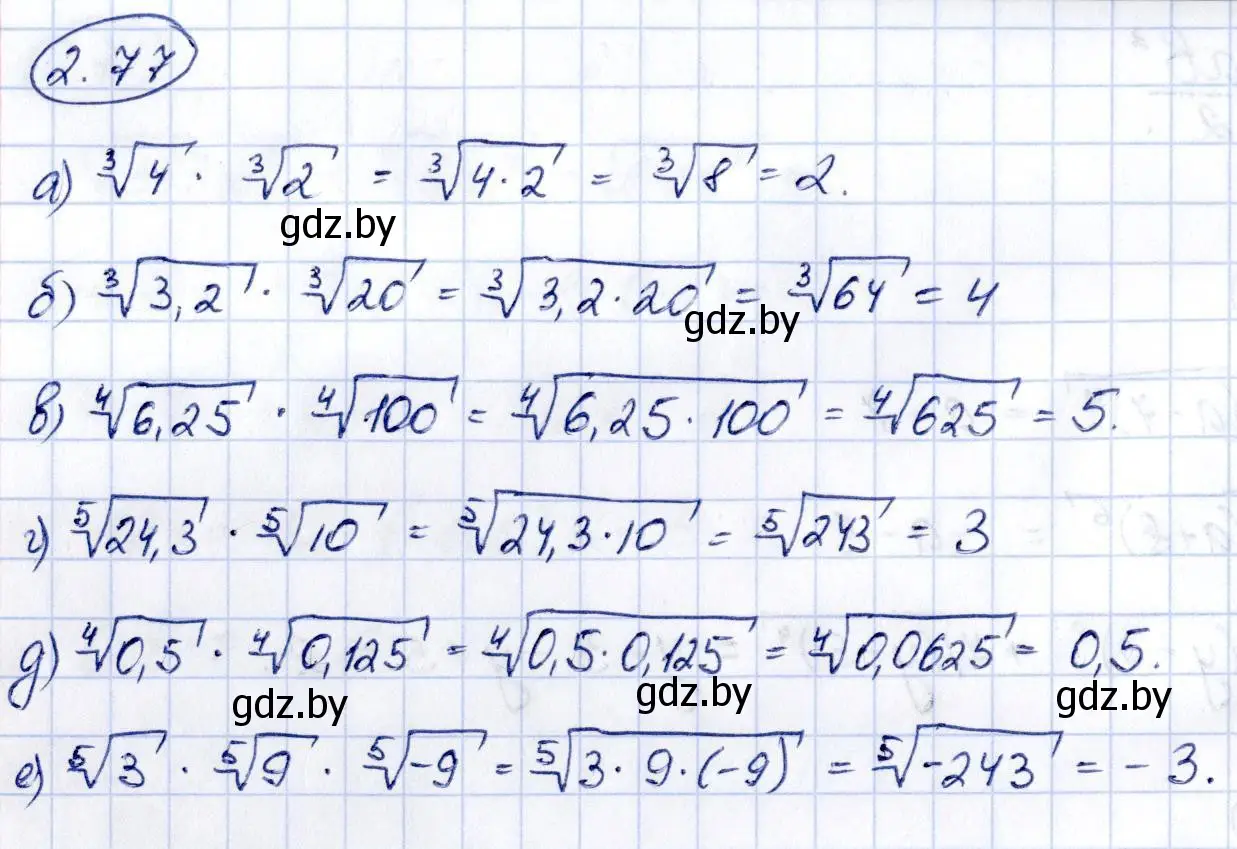 2.77
а) ∛4 · ∛2 = ∛(4·2) = ∛8 = 2.
gdz.by
б) ∛3,2 · ∛20 = ∛(3,2·20) = ∛64 = 4
gdz.by
в) ∜6,25 · ∜100 = ∜(6,25·100) = ∜625 = 5.
г) ⁵√24,3 · ⁵√10 = ⁵√(24,3·10) = ⁵√243 = 3
д) ∜0,5 · ∜0,125 = ∜(0,5·0,125) = ∜0,0625 = 0,5.
gdz.by gdz.by gdz.by
е) ⁵√3 · ⁵√9 · ⁵√-9 = ⁵√(3·9·(-9)) = ⁵√-243 = -3.